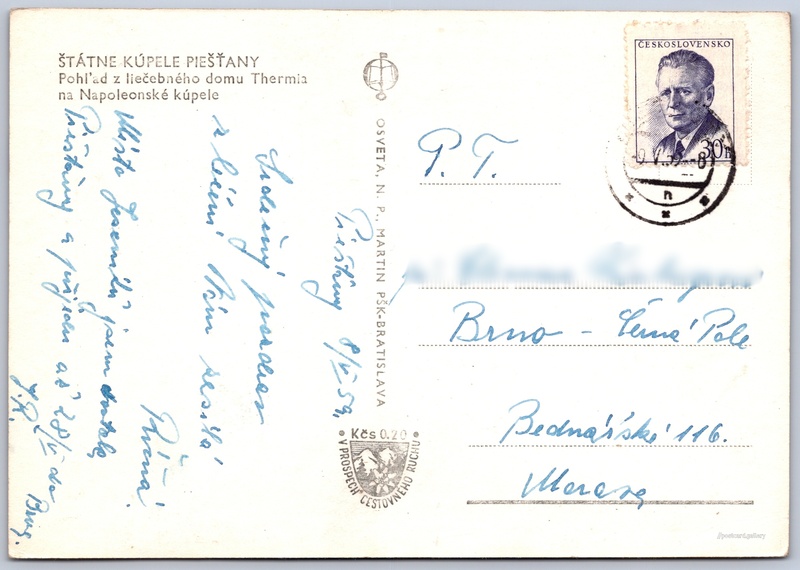 ŠTÁTNE KÚPELE PIEŠŤANY
Pohľad z liečebného domu Thermia
na Napoleonské kúpele
OSVETA, N. P., MARTIN PŠK-BRATISLAVA
Kčs 0.20
V PROSPECH CESTOVNÉHO RUCHU
ČESKOSLOVENSKO
30h
Piešťany 8/V 59.
Srdečný pozdrav
z léčení Vám zasílá
Růžená
Místo Jeseníku jsem dostala
Piešťany a přijedu až 28/V do
Brna.
P. T.
Brno - Černá Pole
Bednářské 116.
Morava